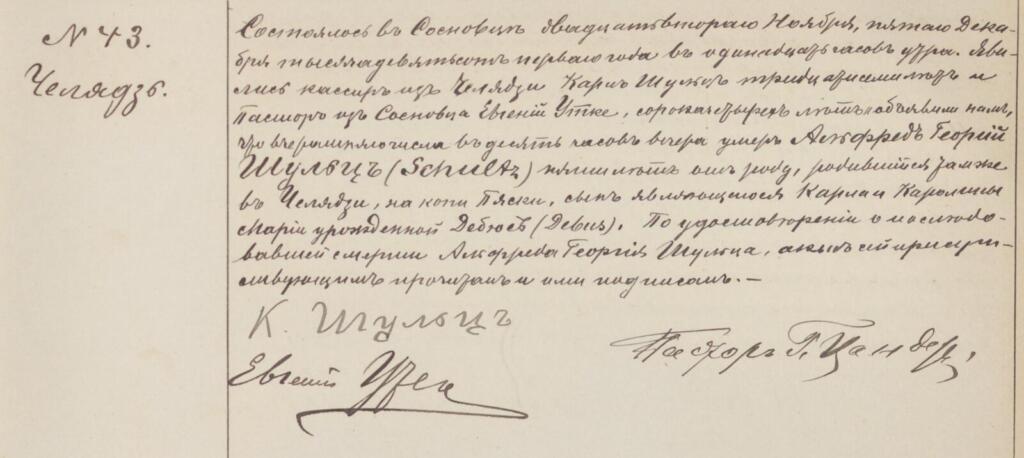 N 43.
Челядзь.
Состоялось въ Сосновцѣ двадцать втораго Ноября, пятаго Дека-
бря тысяча девятьсотъ перваго года въ одинадцать часовъ утра. Яви-
лись кассиръ изъ Челядзи Карлъ Шульцъ тридцати семи лѣтъ и
Пасторъ изъ Сосновца Евгеній Утке, сорока четырехъ лѣтъ и объявили намъ,
что вчерашняго числа въ десять часовъ вечера умеръ Альфредъ Георгій
Шульцъ (Schultz) пяти лѣтъ отъ роду, родившійся тамже
въ Челядзи, на копи Пяски, сынъ являющагося Карла и Каролины
Маріи урожденной Дебюсъ (). По удостовѣреніи о послѣдо-
вавшей смерти Альфреда Георгія Шульца, актъ сей присут-
ствующимъ прочитанъ и ими подписанъ. —
К. Шульцъ
Евгеній Утке
Пасторъ Г. Цандеръ,